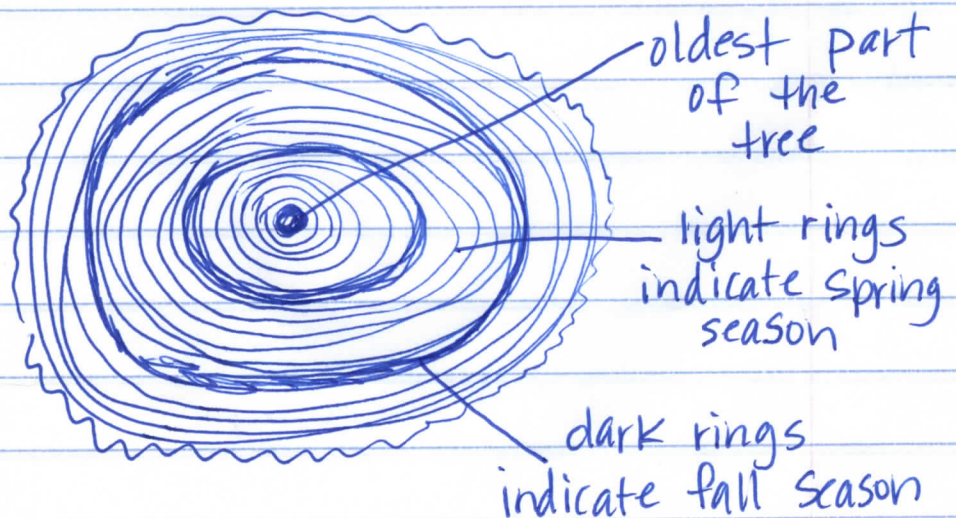 oldest part
of the
tree
light rings
indicate spring
season
dark rings
indicate fall season